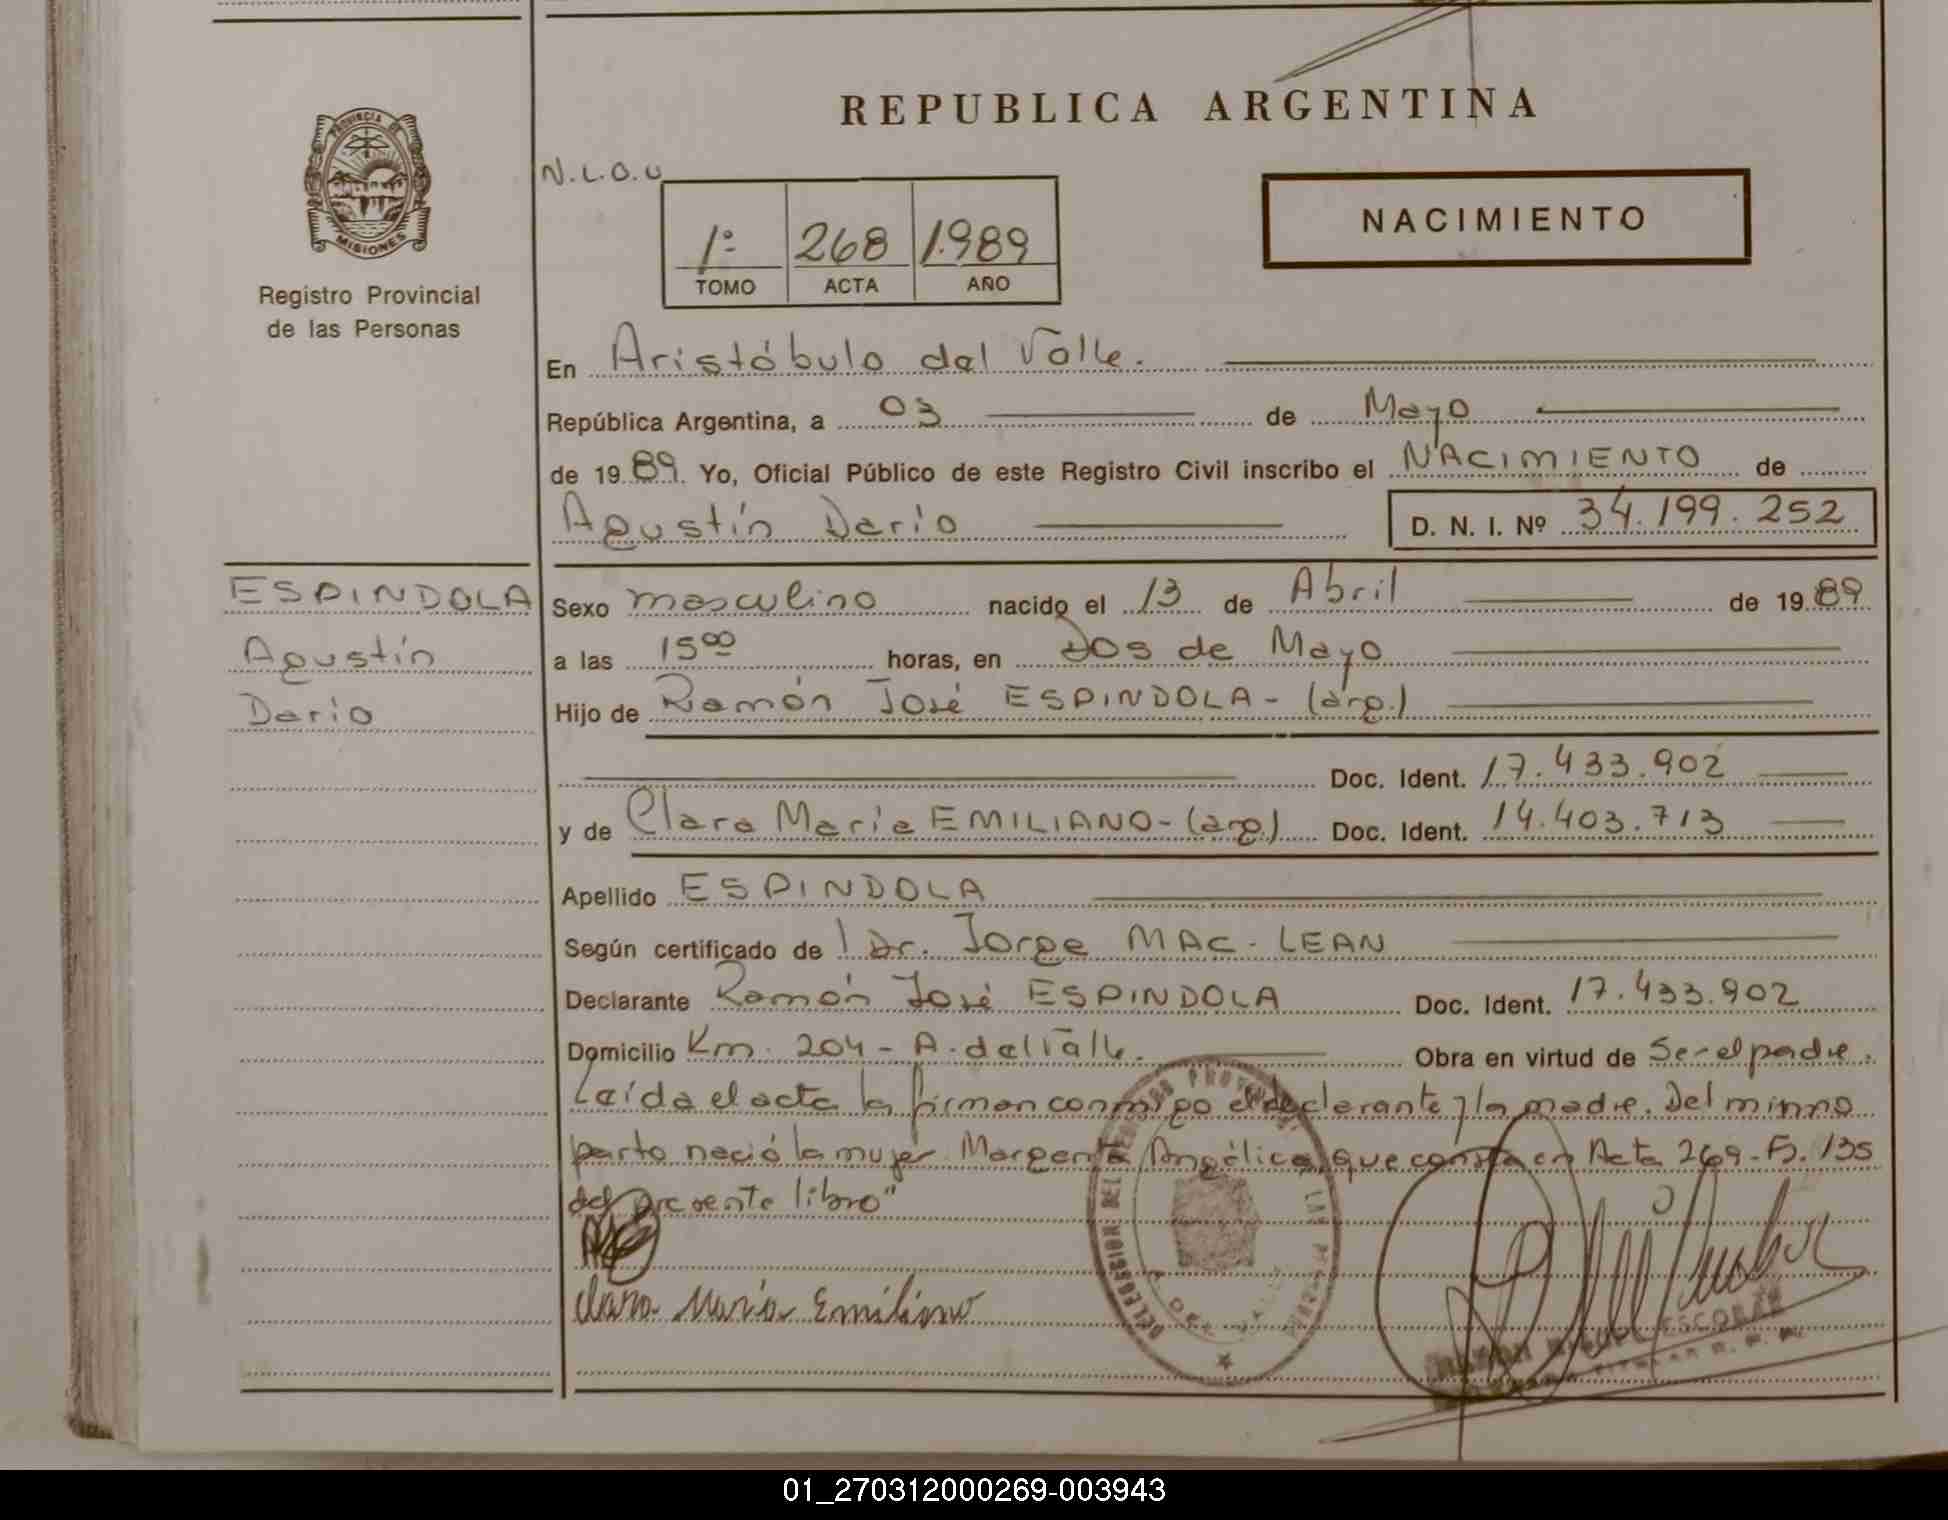 REPUBLICA ARGENTINA
PROVINCIA DE
MISIONES
Registro Provincial
de las Personas
N.L.O.U
NACIMIENTO
1º 268 1.989
TOMO ACTA AÑO
En Aristóbulo del Valle.
República Argentina, a 03 de Mayo
de 19 89. Yo, Oficial Público de este Registro Civil inscribo el NACIMIENTO de
Agustín Darío D. N. I. Nº 34.199.252
ESPINDOLA
Agustín
Darío
Sexo masculino nacido el 13 de Abril de 19 89
a las 15ºº horas, en Dos de Mayo
Hijo de Ramón José ESPINDOLA - (arg.)
Doc. Ident. 17.433.902
y de Clara María EMILIANO - (arg.) Doc. Ident. 14.403.713
Apellido ESPINDOLA
Según certificado de l Dr. Jorge MAC-LEAN
Declarante Ramón José ESPINDOLA Doc. Ident. 17.433.902
Domicilio Km. 204 - A. del Valle. Obra en virtud de Ser el padre.
Leída el acta la firman conmigo el declarante y la madre. Del mismo
parto nació la mujer Margarita Angélica, que consta en Acta 269 - F. 135
del presente libro"
Clara María Emiliano
ESCOBAR
01_270312000269-003943